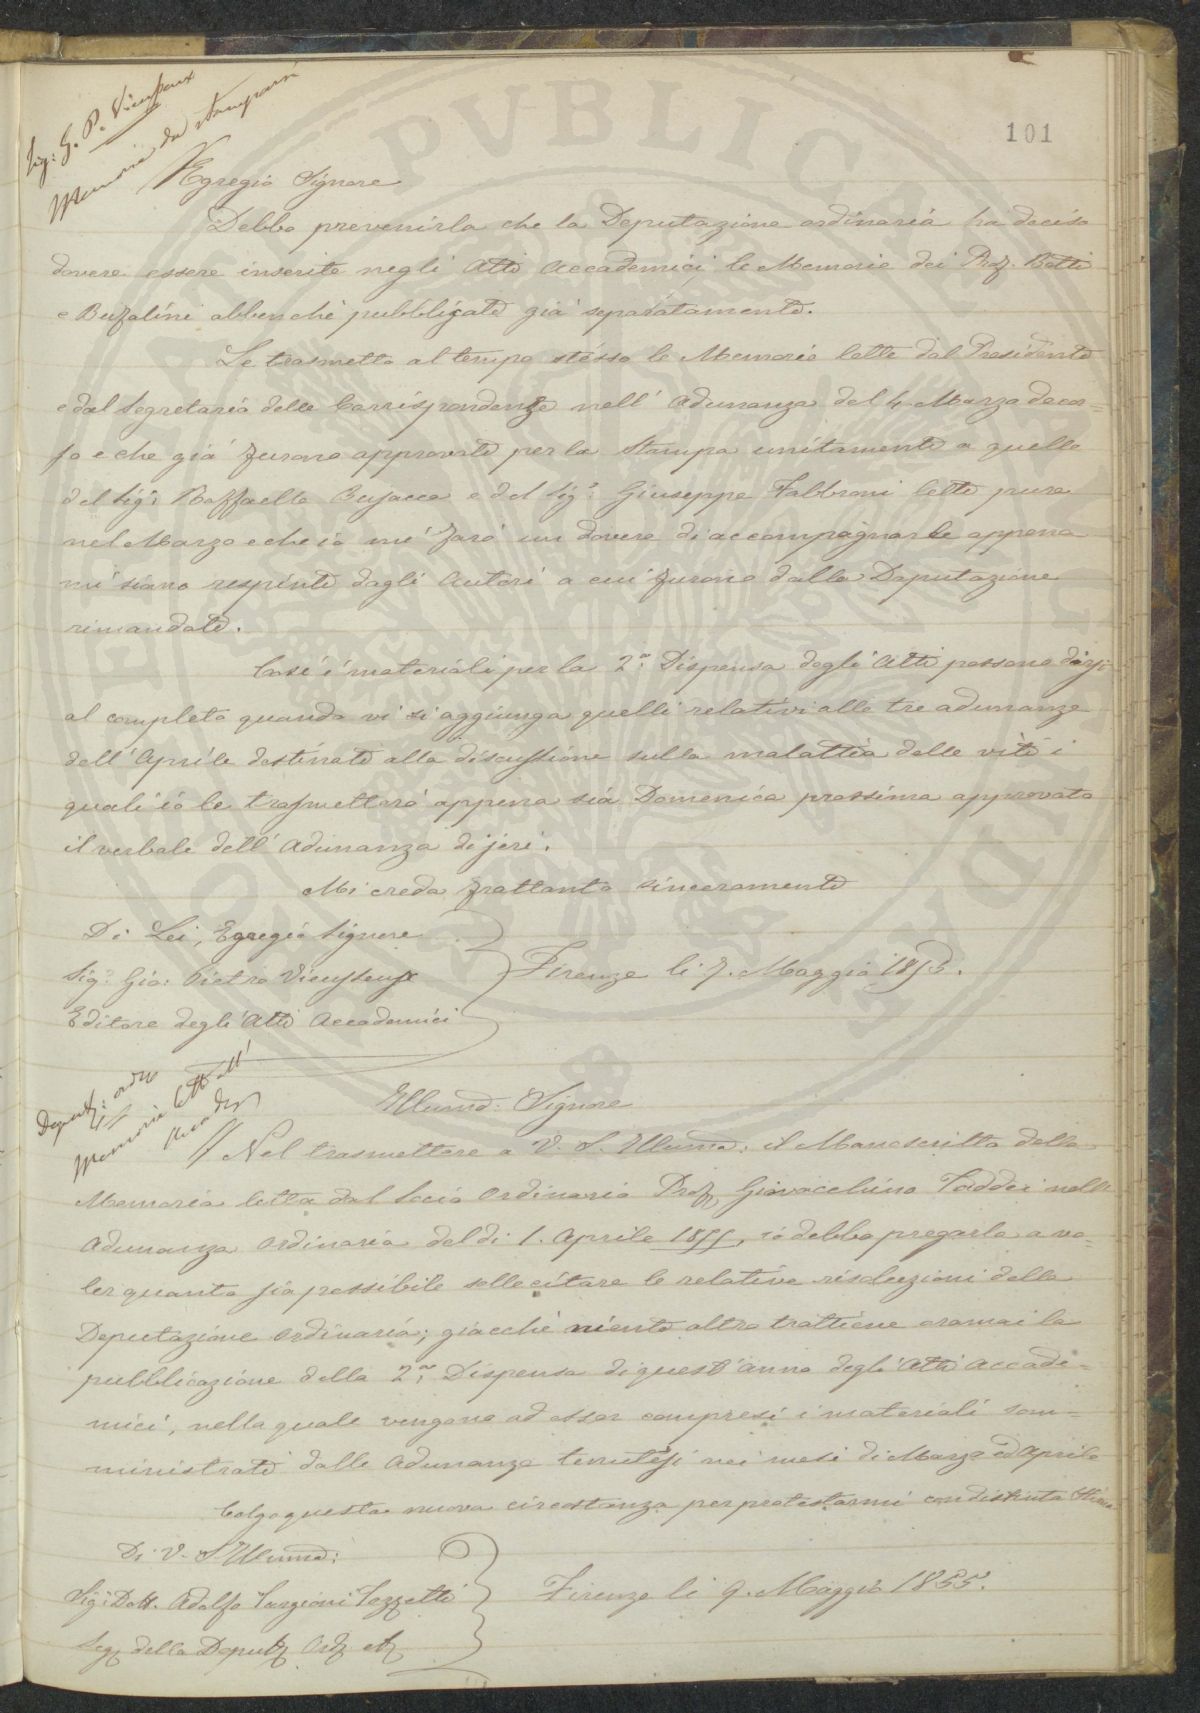 101
Sig: G. P. Vieusseux
Memorie da stamparsi
Egregio Signore
Debbo prevenirla che la Deputazione ordinaria ha deciso
dovere essere inserite negli Atti Accademici le Memorie dei Prof. Betti
e Bufalini abbenchè pubblicate già separatamente.
Le trasmetto al tempo stesso le Memorie lette dal Presidente
e dal Segretario delle Corrispondenze nell' Adunanza del 4 Marzo decor=
so e che già furono approvate per la stampa unitamente a quelle
del Sigr: Raffaello Busacca e del Sigr: Giuseppe Fabbroni lette pure
nel Marzo e che io mi farò un dovere di accompagnarle appena
mi siano respinte dagli Autori a cui furono dalla Deputazione
rimandate.
Così i materiali per la 2a: Dispensa degli Atti possono dirsi
al completo quando vi si aggiunga quelli relativi alle tre adunanze
dell' Aprile destinate alla discussione sulla malattia delle viti i
quali io le trasmetterò appena sia Domenica prossima approvato
il verbale dell' Adunanza di jeri.
Mi creda frattanto sinceramente
Di Lei, Egregio Signore
Sigr: Gio: Pietro Vieusseux
Firenze li 7. Maggio 1855.
Editore degli Atti Accademici
Deputz: ord:
Memorie lette all'
Accad
Illumo: Signore
Nel trasmettere a V. S. Illuma: il Manoscritto della
Memoria letta dal Socio Ordinario Prof Giovacchino Taddei nell'
Adunanza Ordinaria del dì 1. Aprile 1855, io debbo pregarla a vo=
ler quanto sia possibile sollecitare le relative risoluzioni della
Deputazione Ordinaria; giacchè niente altro trattiene oramai la
pubblicazione della 2a: Dispensa di quest'anno degli Atti Accade=
mici, nella quale vengono ad esser compresi i materiali som=
ministrati dalle Adunanze tenutesi nei mesi di Marzo ed Aprile
Colgo questa nuova circostanza per protestarmi con distinta stima
Di V. S. Illuma:
Sigr: Dott. Adolfo Targioni Tozzetti
Firenze li 9. Maggio 1855.
Seg della Deput Ord